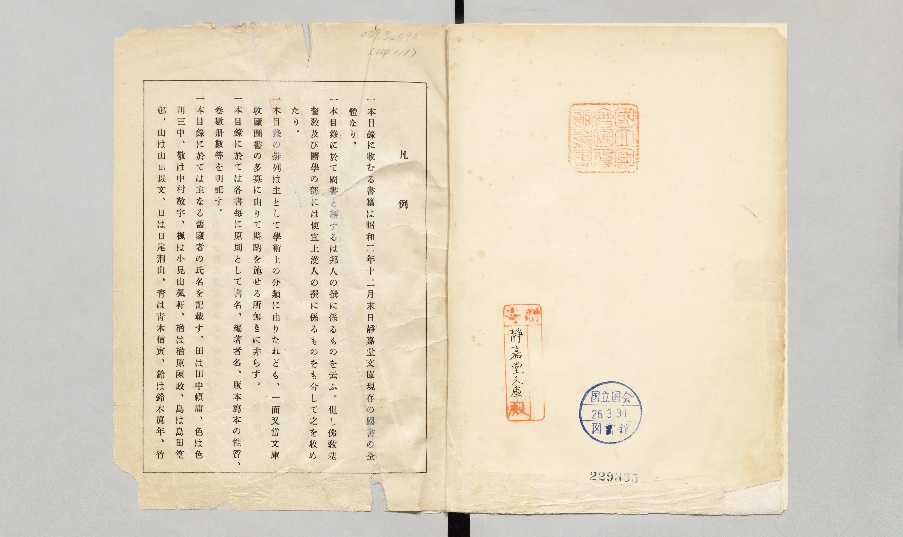 凡例
一本目錄に收むる書籍は昭和二年十二月末日靜嘉堂文庫現存の國書の全
部なり。
一本目錄に於て國書と稱するは邦人の撰に係るものを云ふ、但し佛敎
醫學の類には便宜上漢人の撰に係るものをも併して之を收め
たり。
一本目錄の排列は主として學術上の分類に由りたれども、一面又當文庫
收藏圖書の多寡に由りて斟酌を施せる所無きに非らず。
一本目錄に於ては各書每に原則として書名、編著者名、版本寫本の性質、
卷數册數等を明記す。
一本目錄に於ては主なる舊藏者の氏名を記載す、田は田中賴庸、色は色
川三中、敬は中村敬宇、楓は小見山楓軒、島は島田篁
邨、山は山田以文、日は日尾荊山、靑は靑木信寅、鈴は鈴木眞年、竹
靜嘉堂文庫
殿
国立国会
26.3.31
図書館
229335